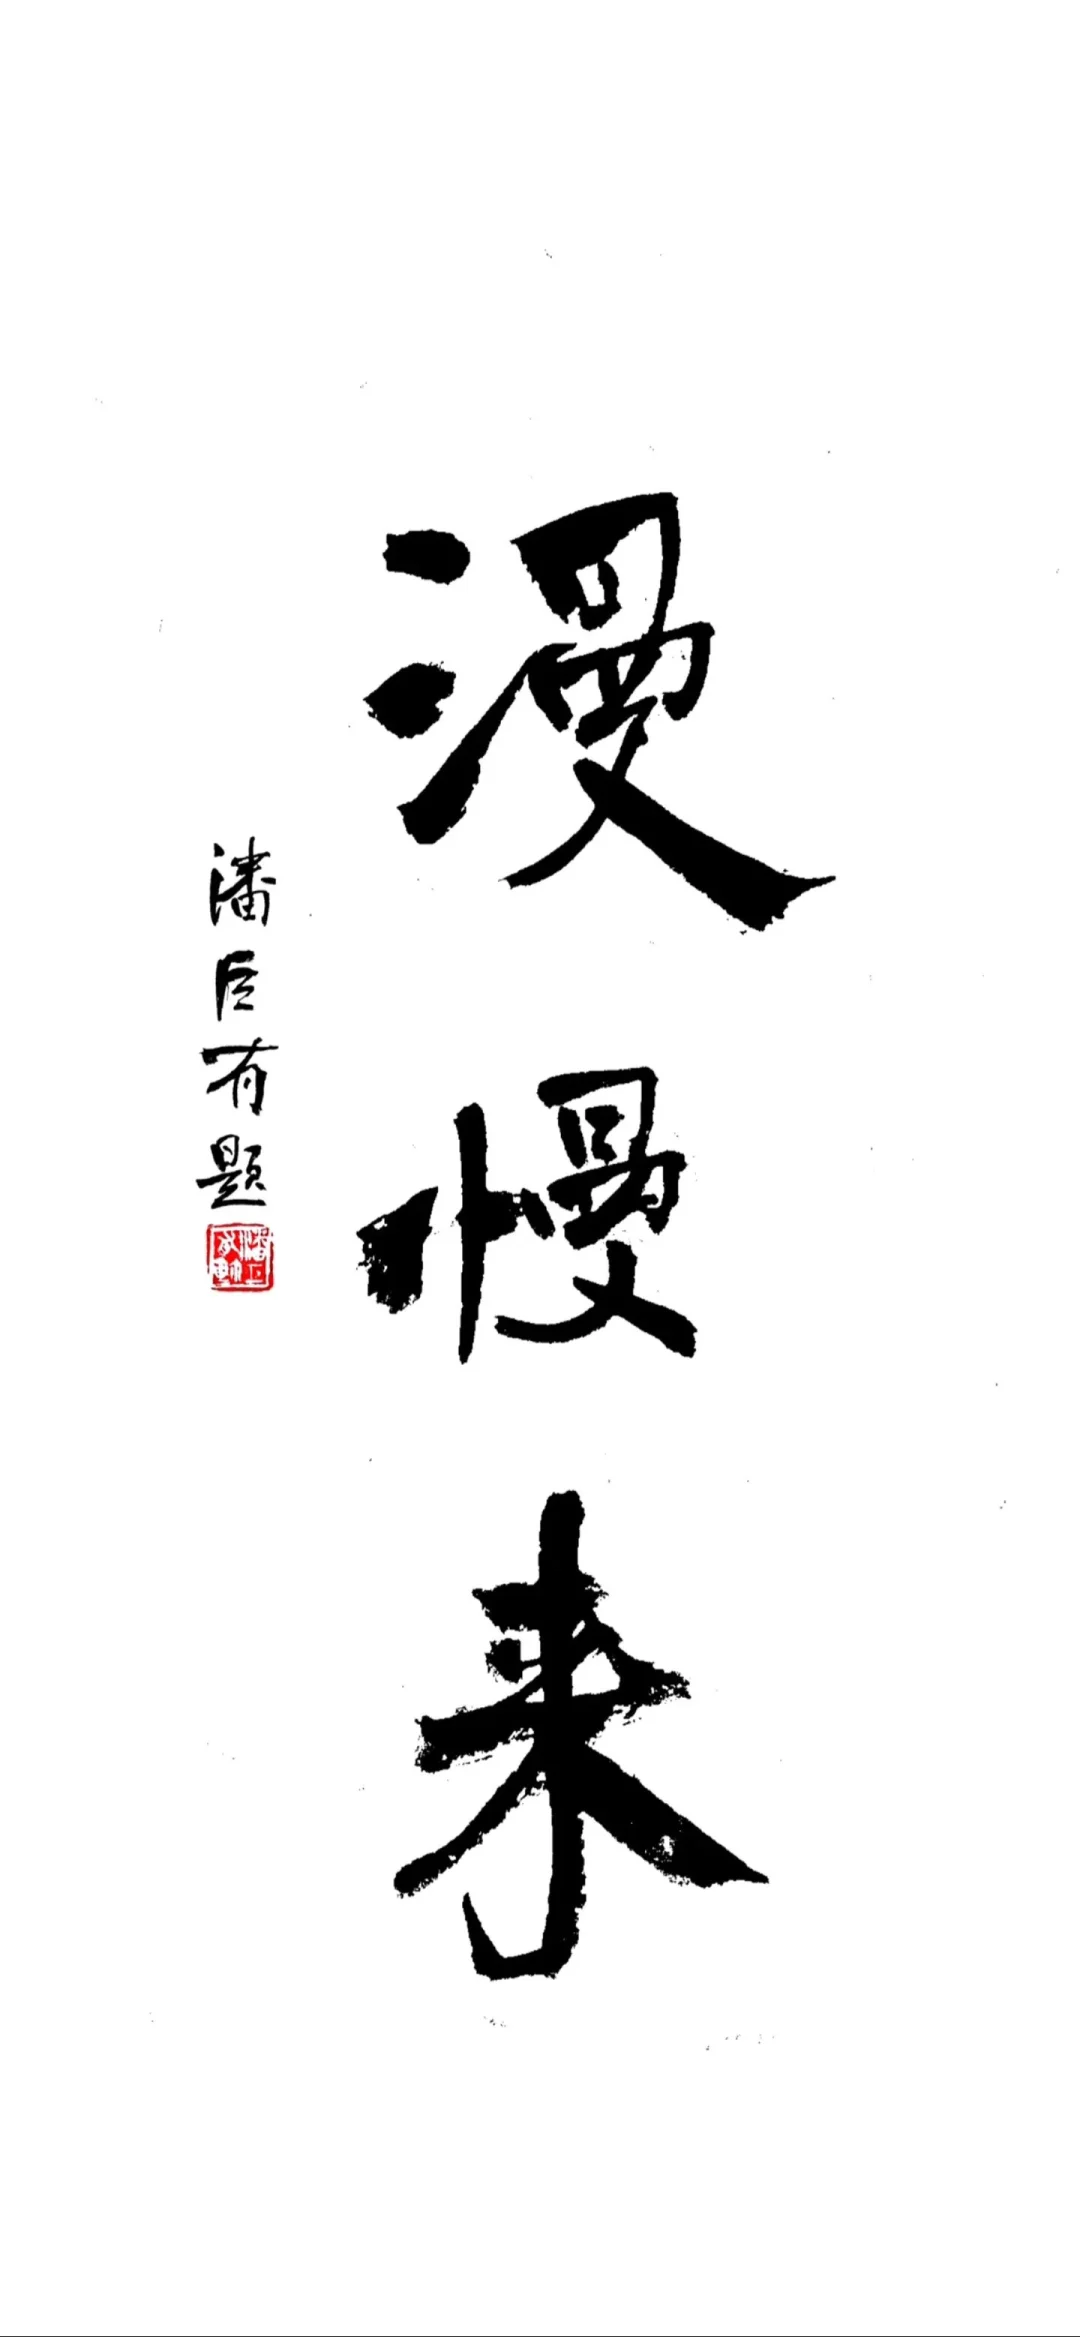 漫慢来
潘巨有题